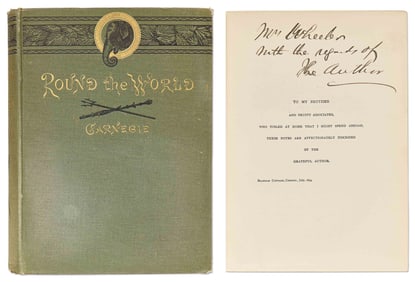 ROUND the WORLD
CARNEGIE
Mrs Wheeler
with the regards of
The Author
TO MY BROTHER
AND TRUSTY ASSOCIATES,
WHO TOILED AT HOME THAT I MIGHT SPEND ABROAD,
THESE NOTES ARE AFFECTIONATELY INSCRIBED
BY THE
GRATEFUL AUTHOR.